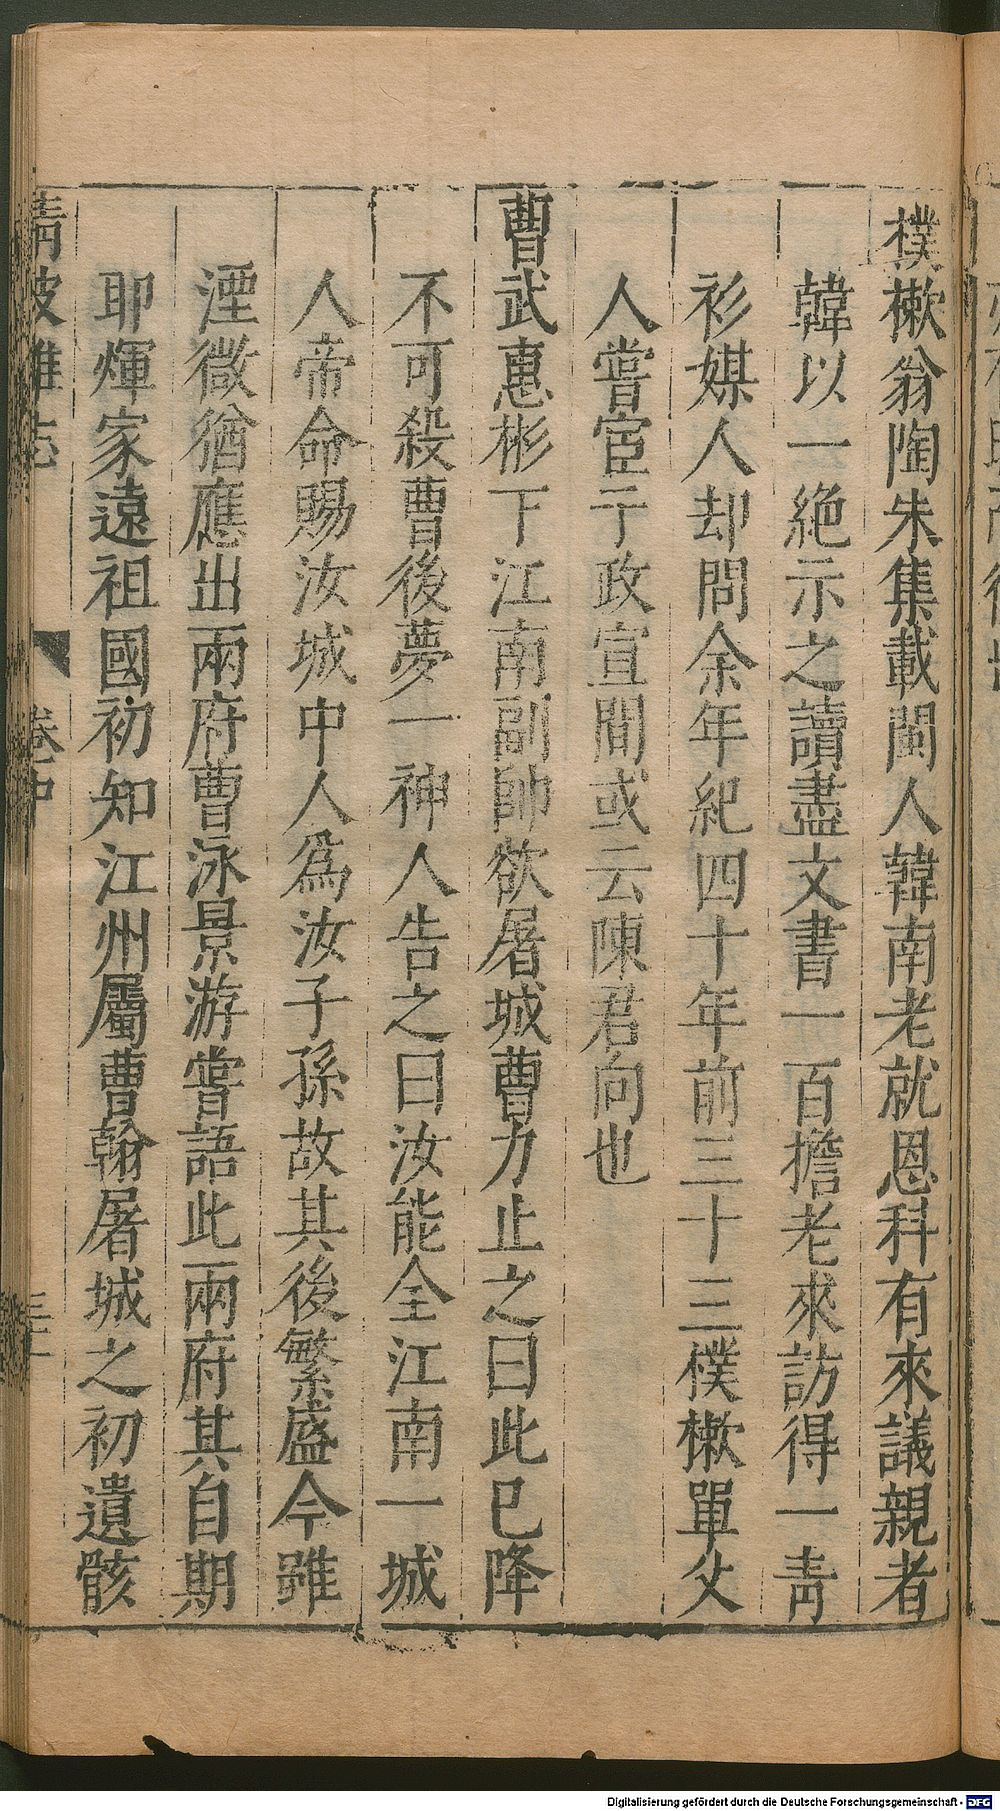 樸樕翁陶朱集載閩人韓南老就恩科有來議親者
韓以一絶示之讀盡文書一百擔老來訪得一青
衫媒人却問余年紀四十年前三十三樸樕單父
人嘗宦于政宣間或云陳君向也
曹武惠彬下江南副帥欲屠城曹力止之曰此已降
不可殺曹後夢一神人告之曰汝能全江南一城
人帝命賜汝城中人爲汝子孫故其後繁盛今雖
湮微猶應出兩府曹泳景游嘗語此兩府其自期
耶煇家遠祖國初知江州屬曹翰屠城之初遺骸
清波雜志 卷中
Digitalisierung gefördert durch die Deutsche Forschungsgemeinschaft - DFG